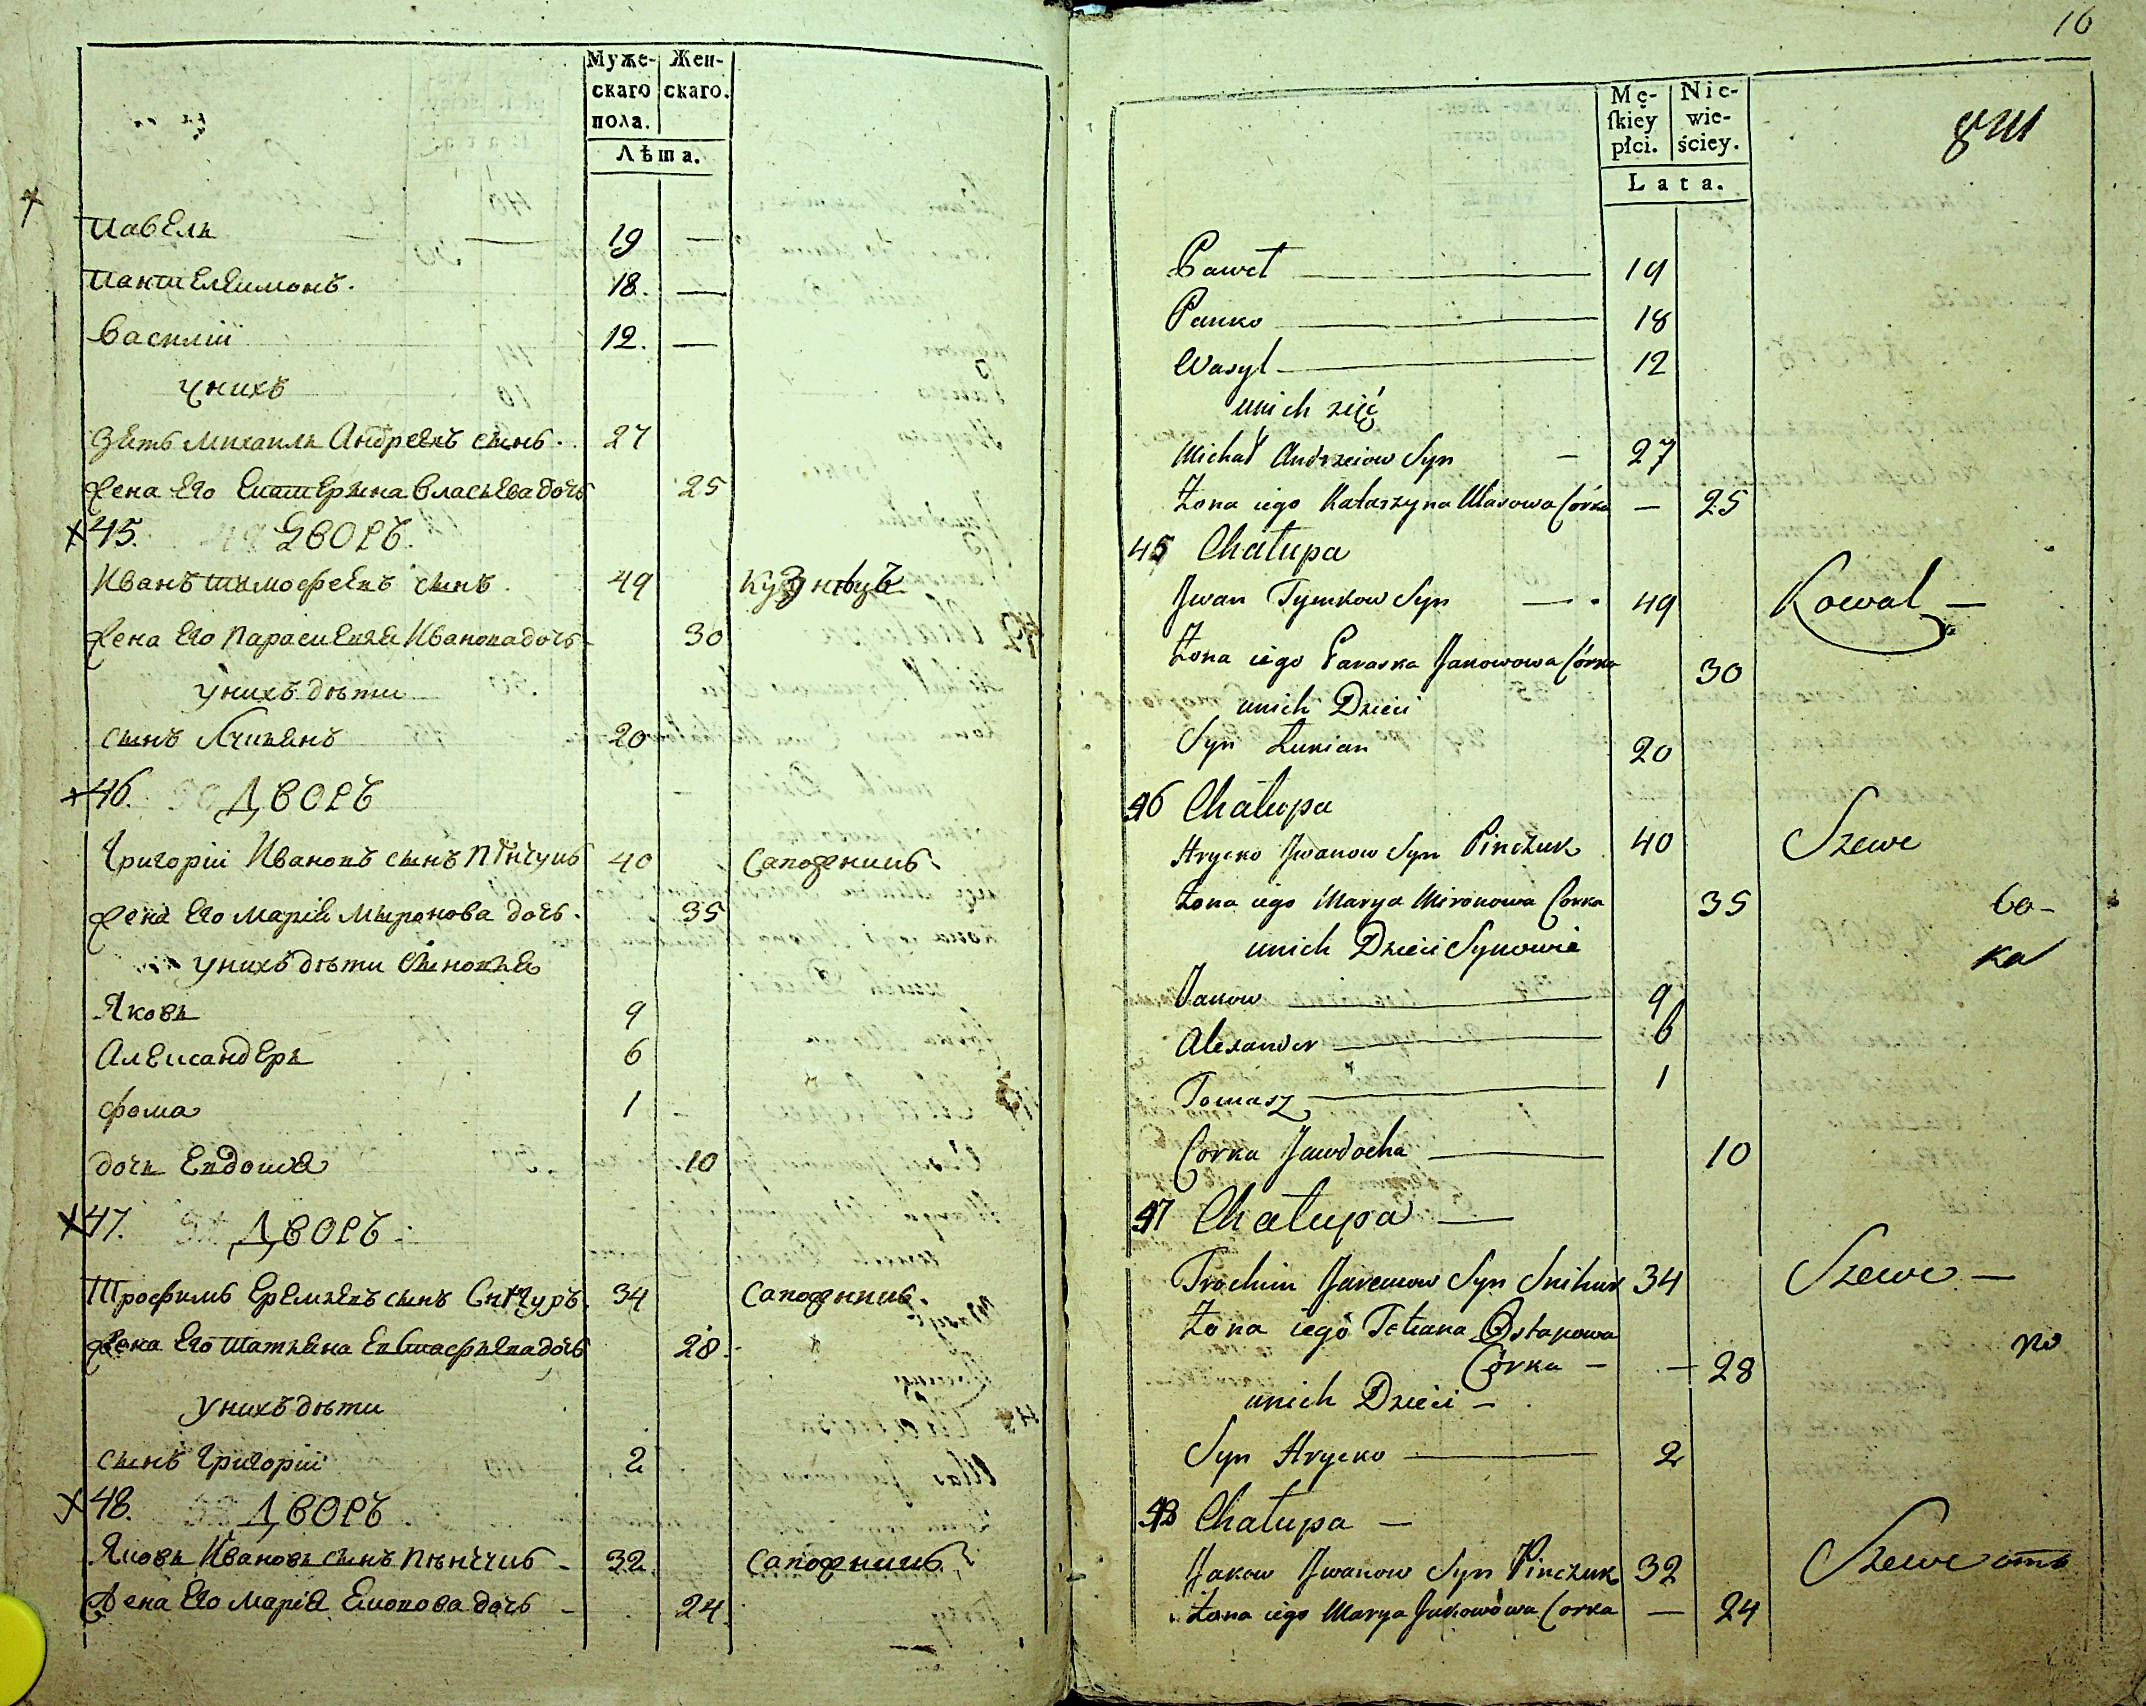 Муже- Жен-
скаго скаго.
пола.
Лѣта.
Павелъ 19 —
Пантелеимонъ. 18. —
Василiй 12. —
у нихъ
зять михаилъ Андреевъ сынъ. 27
жена Его Екатерина Власьева дочь 25
45. Дворъ.
Иванъ тимофеевъ сынъ. 49 кузнѣцъ
жена Его Парасковiя Иванова дочь 30
у нихъ дѣти
сынъ Лукьянъ 20
46. Дворъ
Григорiй Ивановъ сынъ Пѣнчукъ 40 сапожникъ
жена Его марiя миронова дочь. 35
у нихъ дѣти Сыновья
Яковъ 9
Александеръ 6
фома 1 -
дочь Евдокiя 10
47. Дворъ.
Трофимъ Еремѣевъ сынъ Снѣгуръ 34 сапожникъ
жена Его татьяна Евстафьева дочь 28.
у нихъ дѣти
сынъ Григорiй 2
48. Дворъ
Яковъ Ивановъ сынъ Пѣнчукъ - 32 сапожникъ
жена Его марiя дочь - 24
16
Mę- Nie-
ſkiey wie-
płci. ściey.
Lata.
Paweł — 19
Panko — 18
Wasyl — 12
unich zięć
Michał Andrzeiow Syn — 27
Żona iego Katarzyna Własowa Córka — 25
45 Chałupa
Jwan Tymkow Syn — 49 Kowal —
Żona iego Paraska Janowowa Córka 30
unich Dzieci
Syn Łukian 20
46 Chałupa
Hrycko Jwanow Syn Pinczuk 40 Szewc
Żona iego Marya Mironowa Corka 35
unich Dzieci Synowie
ка
Jakow — 9
Alexander — 6
Tomasz — 1
Corka Jawdocha — 10
47 Chałupa —
Trochim Jaremow Syn Snihur 34 Szewc —
Żona iego Tetiana Ostapowa
Córka — — 28
по
unich Dzieci —
Syn Hrycko — 2
48 Chałupa —
Jakow Jwanow Syn Pinczuk 32 Szewc отъ
Żona iego Marya Corka — 24